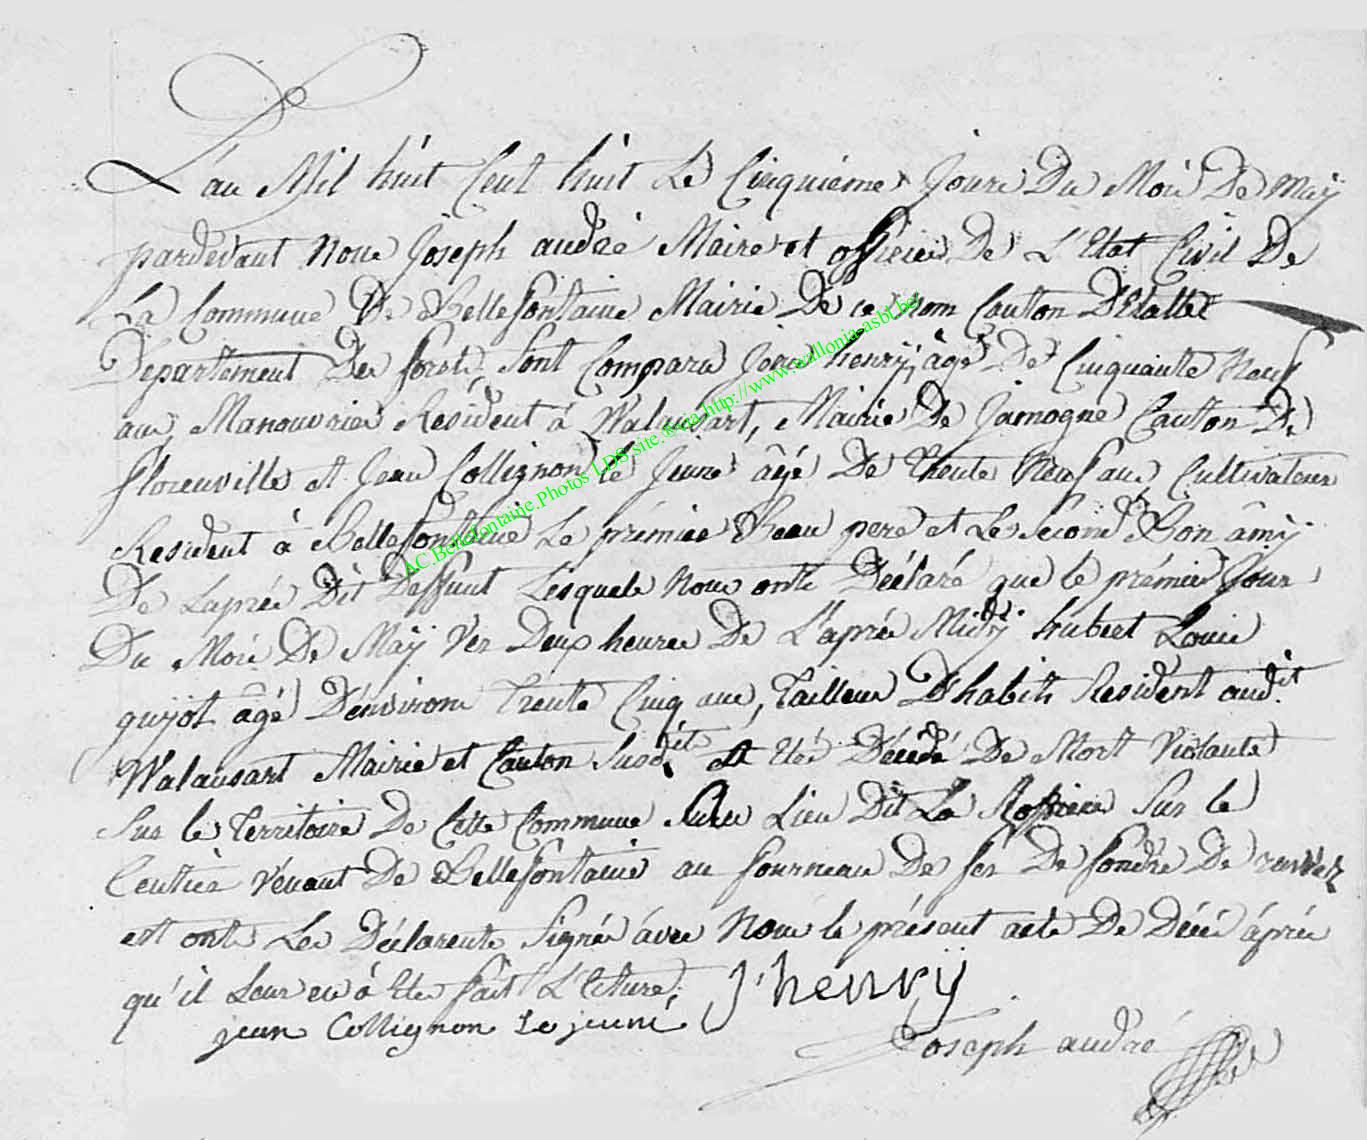 L'an Mil huit Cent huit Le Cinquième Jour Du Mois De Maÿ
pardevant Nous Joseph andré Maire et officier De L'Etat Civil De
La Commune De Bellefontaine Mairie De ce nom Canton D'Etalle
Département Des forets Sont Comparu Jean henrÿ, âgé De Cinquante Neuf
ans Manouvrier Résident à Walansart, Mairie De Jamogne Canton De
florenville et Jean Collignon le Jeune âgé De trente Neuf ans Cultivateur
Resident à Bellefontaine Le prémier Beau pere et Le Second Bon âmÿ
De Laprés Dit Deffunt Lesquels Nous onts Déclaré que le prémier Jour
Du Mois De Maÿ Ver Deux heures De L'aprés Midÿ hubert Louis
guÿot âgé D'environs trente Cinq ans, Tailleur D'habits Resident audit
Walansart Mairie et Canton Susdit Est Eté Décédé De Mort Violante
Sur le Territoire De Cette Commune Lieu Dit La Sur le
Centier Vénant De Bellefontaine au fourneau De fer De fondre De
est onts Les Déclarents Signés âvec Nous le présent acte De Décé áprés
qu'il Leur en à Eté fait L'Ecture; J'henrÿ
jean Collignon Le jeune
Joseph andré
AC.Bellefontaine.Photos LDS site http://www.wallonia-asbl.be